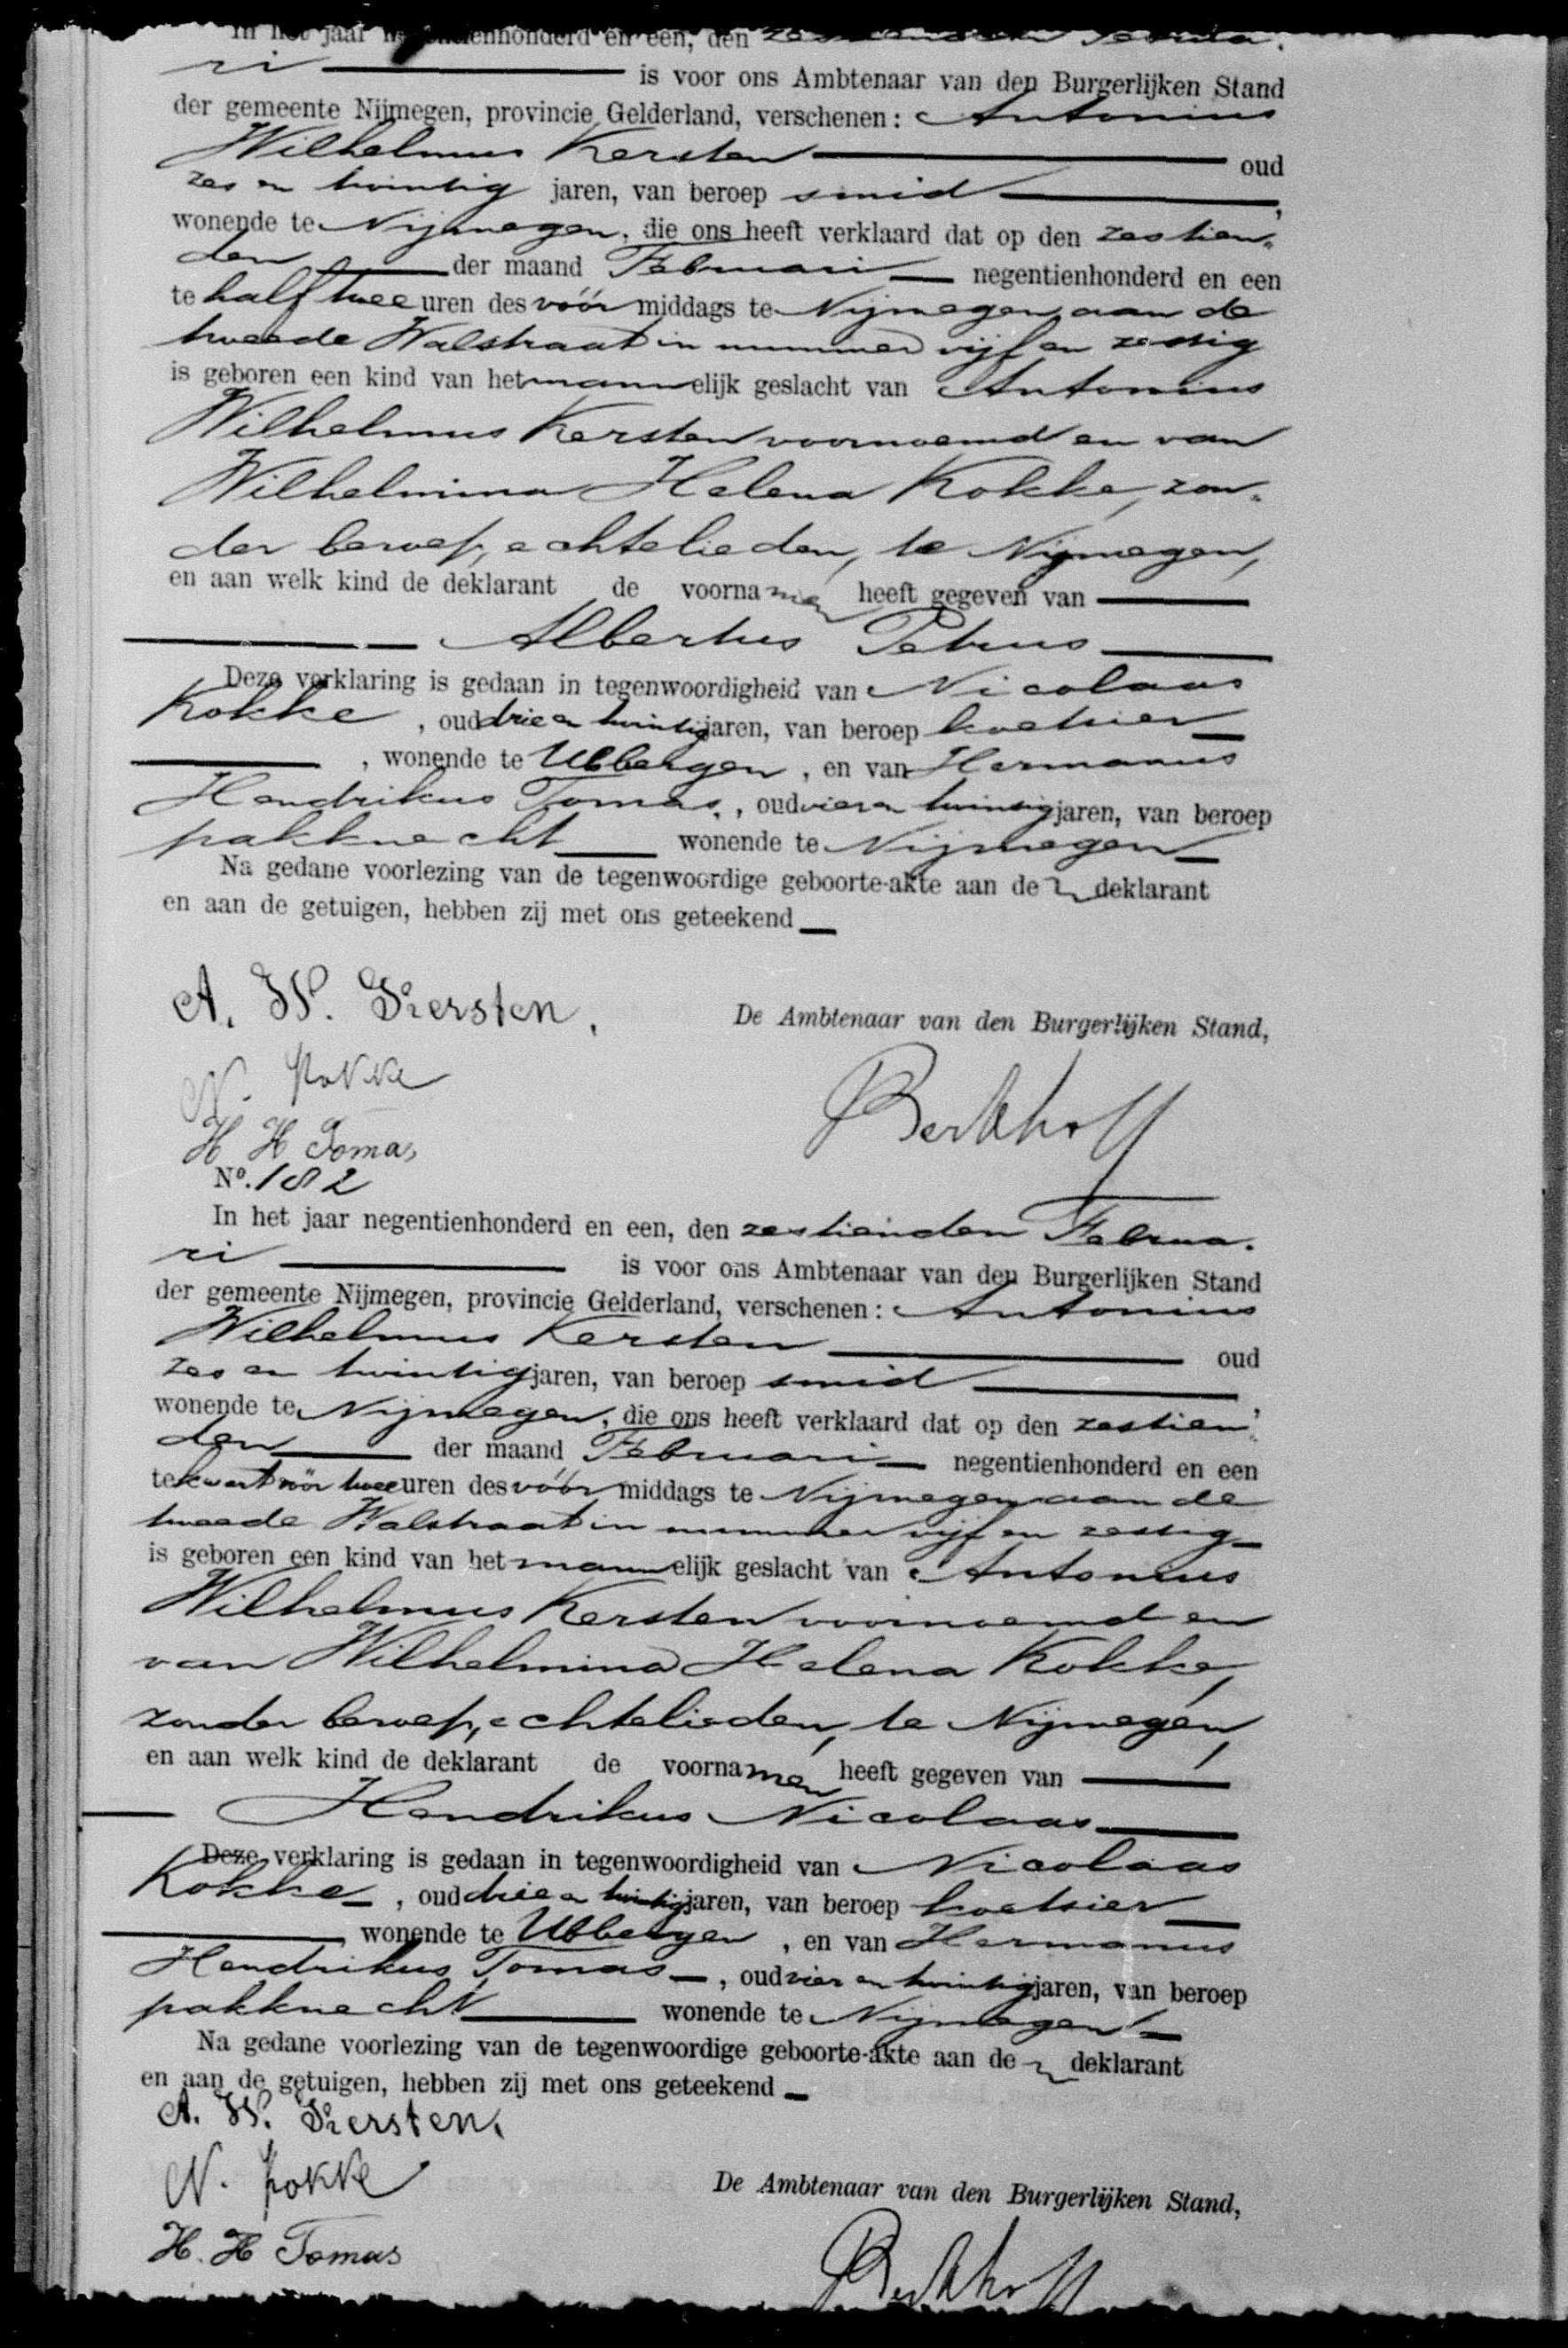 In het jaar negentienhonderd en een, den zestienden Februa-
ri is voor ons Ambtenaar van den Burgerlijken Stand
der gemeente Nijmegen, provincie Gelderland, verschenen: Antonius
Wilhelmus Kersten oud
zes en twintig jaren, van beroep smid,
wonende te Nijmegen, die ons heeft verklaard dat op den zestien-
den der maand Februari negentienhonderd en een
te half twee uren des vóór middags te Nijmegen aan de
tweede Walstraat in nummer vijf en zestig
is geboren een kind van het mannelijk geslacht van Antonius
Wilhelmus Kersten voornoemd en van
Wilhelmina Helena Kokke, zon-
der beroep, echtelieden, te Nijmegen,
en aan welk kind de deklarant de voornamen heeft gegeven van
Albertus Petrus
Deze verklaring is gedaan in tegenwoordigheid van Nicolaas
Kokke, oud drie en twintig jaren, van beroep koetsier
, wonende te Ubbergen, en van Hermanus
Hendrikus Tomas, oud vier en twintig jaren, van beroep
pakknecht wonende te Nijmegen
Na gedane voorlezing van de tegenwoordige geboorte-akte aan de deklarant
en aan de getuigen, hebben zij met ons geteekend
A. W. Kersten.
De Ambtenaar van den Burgerlijken Stand,
N. Kokke
Berkhoff
H H Tomas
No. 182
In het jaar negentienhonderd en een, den zestienden Februa-
ri is voor ons Ambtenaar van den Burgerlijken Stand
der gemeente Nijmegen, provincie Gelderland, verschenen: Antonius
Wilhelmus Kersten oud
zes en twintig jaren, van beroep smid,
wonende te Nijmegen, die ons heeft verklaard dat op den zestien-
den der maand Februari negentienhonderd en een
te kwart vóór twee uren des vóór middags te Nijmegen aan de
tweede Walstraat in nummer vijf en zestig
is geboren een kind van het mannelijk geslacht van Antonius
Wilhelmus Kersten voornoemd en
van Wilhelmina Helena Kokke,
zonder beroep, echtelieden, te Nijmegen,
en aan welk kind de deklarant de voornamen heeft gegeven van
Hendrikus Nicolaas
Deze verklaring is gedaan in tegenwoordigheid van Nicolaas
Kokke, oud drie en twintig jaren, van beroep koetsier
, wonende te Ubbergen, en van Hermanus
Hendrikus Tomas, oud vier en twintig jaren, van beroep
pakknecht wonende te Nijmegen
Na gedane voorlezing van de tegenwoordige geboorte-akte aan de deklarant
en aan de getuigen, hebben zij met ons geteekend
A. W. Kersten.
N. Kokke
De Ambtenaar van den Burgerlijken Stand,
H. H Tomas
Berkhoff